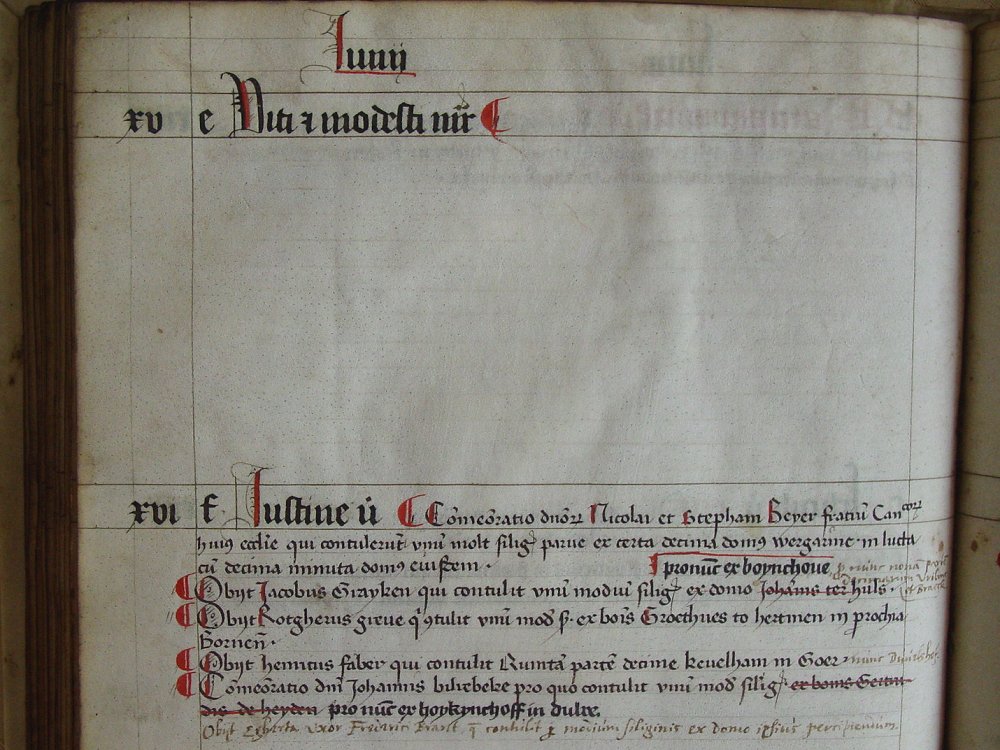 Iunij
xv e Viti ⁊ modesti mr̃
xvi f Iustine ṽ Cõmeõratio dnõr Nicolai et Stephani Beyer fratrũ Can
huiꝰ ecclie qui contulerut vnũ molt silig parue ex certa decima domꝰ wergarinc in lucta
cũ decima minuta domꝰ eiusdem . pro nũc ex boynchoue
Obijt Jacobus Grayken qui contulit vnũ modiũ silig ex domo Johãnis ter huls .
Obijt Rotgherus greue q ꝯtulit vnũ mod s. ex boĩs Groethues to hertmen in prochia
Bornen .
Obijt henricus faber qui contulit Quintã partẽ decime keuelham in Goer nunc
Cõmeõratio dnĩ Johannis bilrebeke pro quo contulit vnũ mod silig ex bonis
de heyden pro nũc ex hoykynchoff in dulre.
Obijt vxor Frederici contulit modium siliginis ex domo ipsius percipiendum